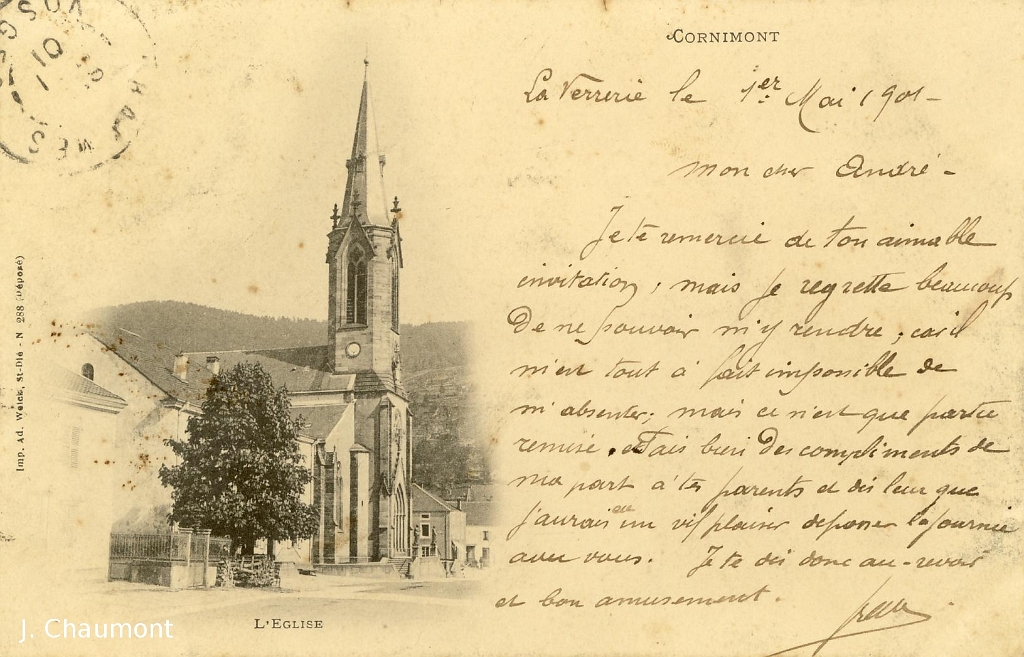 CORNIMONT
La Verrerie le 1er Mai 1901-
Mon cher André-
Je te remercie de ton aimable
invitation, mais je regrette beaucoup
De ne pouvoir m'y rendre, car il
m'est tout à fait impossible de
m'absenter; mais ce n'est que partie
remise. Fais bien Des compliments de
ma part à tes parents et dis leur que
j'aurais eu un vif plaisir de passer la journée
avec vous. Je te dis donc au-revoir
et bon amusement.
L'EGLISE
Imp. Ad. Weick, St-Dié - N 288 (Déposé)
J. Chaumont